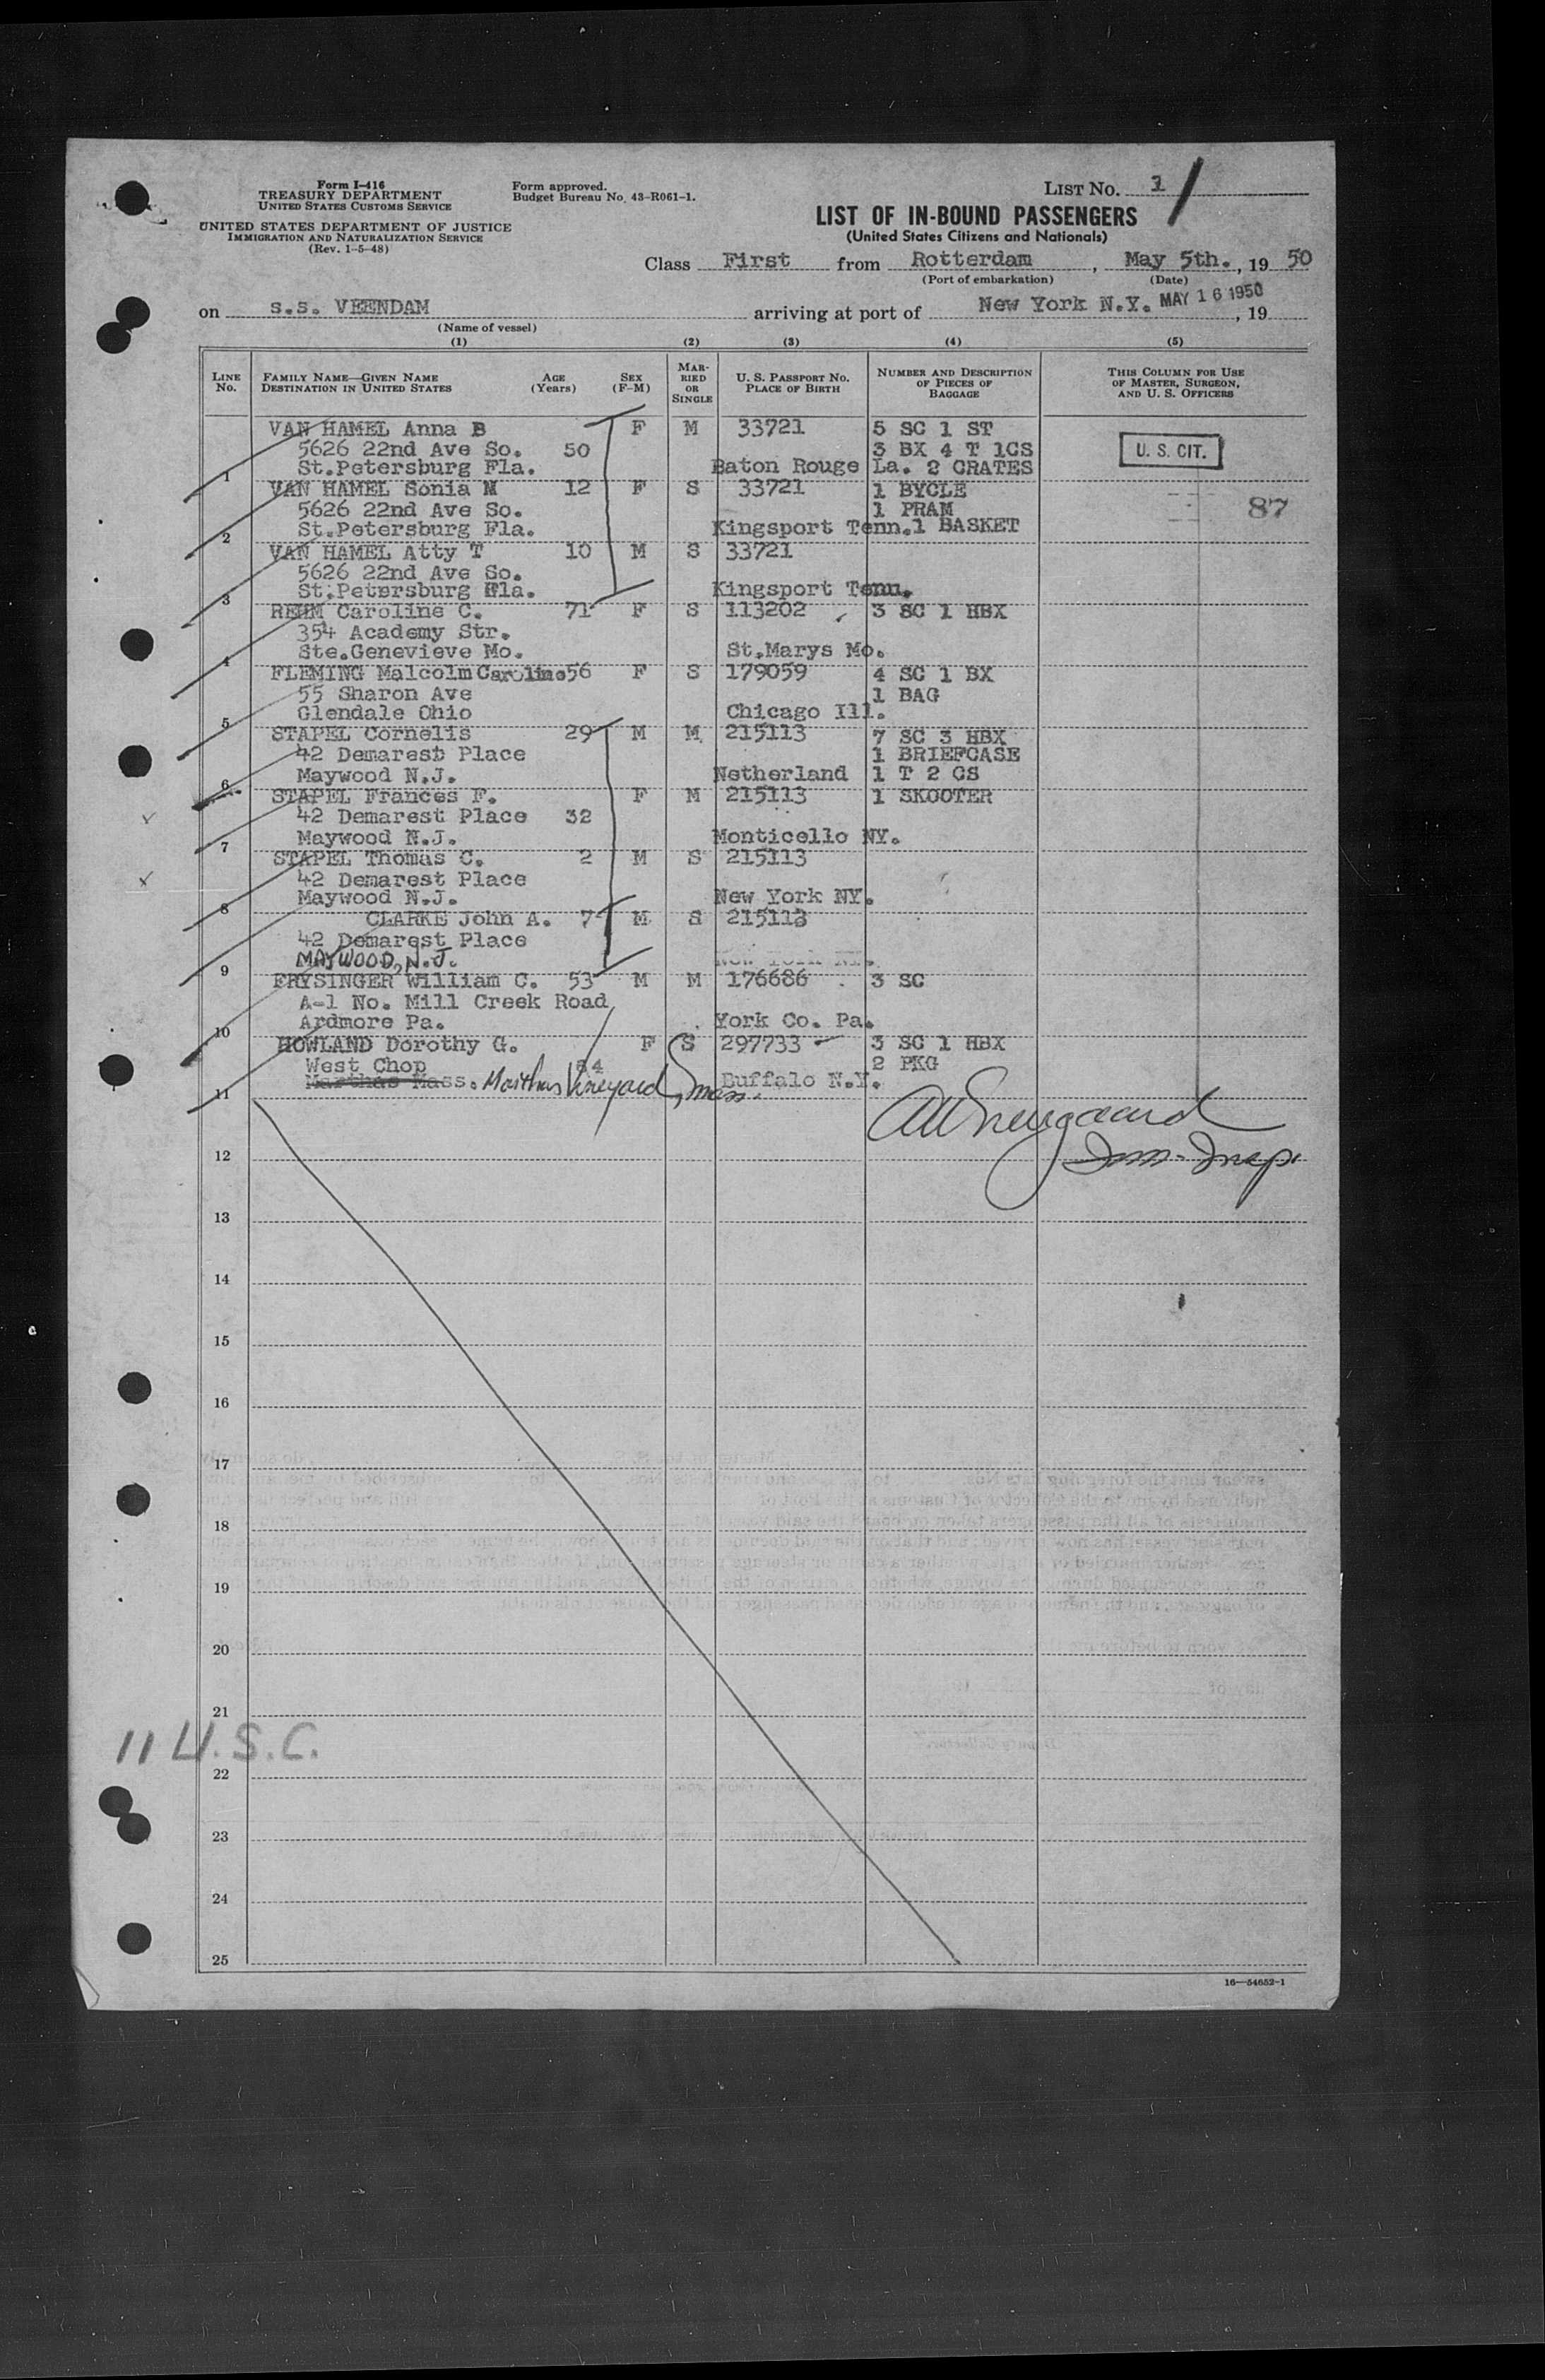 Form I-416
TREASURY DEPARTMENT
UNITED STATES CUSTOMS SERVICE
UNITED STATES DEPARTMENT OF JUSTICE
IMMIGRATION AND NATURALIZATION SERVICE
(Rev. 1-5-48)
Form approved.
Budget Bureau No. 43-R061-1.
LIST No. 1
LIST OF IN-BOUND PASSENGERS
(United States Citizens and Nationals)
Class First from Rotterdam, May 5th., 19 50
(Port of embarkation) (Date)
on s.s. VEENDAM arriving at port of New York N.Y. MAY 16 1950, 19
(Name of vessel)
(1) (2) (3) (4) (5)
LINE No. FAMILY NAME—GIVEN NAME DESTINATION IN UNITED STATES AGE (Years) SEX (F-M) MARRIED OR SINGLE U. S. PASSPORT No. PLACE OF BIRTH NUMBER AND DESCRIPTION OF PIECES OF BAGGAGE THIS COLUMN FOR USE OF MASTER, SURGEON, AND U. S. OFFICERS
VAN HAMEL Anna B F M 33721 5 SC 1 ST
5626 22nd Ave So. 50 3 BX 4 T 1CS U. S. CIT.
1 St.Petersburg Fla. Baton Rouge La. 2 CRATES
VAN HAMEL Sonia M 12 F S 33721 1 BYCLE
5626 22nd Ave So. 1 PRAM 87
2 St.Petersburg Fla. Kingsport Tenn.1 BASKET
VAN HAMEL Atty T 10 M S 33721
5626 22nd Ave So.
3 St.Petersburg Fla. Kingsport Tenn.
REHM Caroline C. 71 F S 113202 3 SC 1 HBX
354 Academy Str.
4 Ste.Genevieve Mo. St.Marys Mo.
FLEMING Malcolm Caroline 56 F S 179059 4 SC 1 BX
55 Sharon Ave 1 BAG
5 Glendale Ohio Chicago Ill.
STAPEL Cornelis 29 M M 215113 7 SC 3 HBX
42 Demarest Place 1 BRIEFCASE
6 Maywood N.J. Netherland 1 T 2 CS
STAPEL Frances F. F M 215113 1 SKOOTER
42 Demarest Place 32
7 Maywood N.J. Monticello NY.
STAPEL Thomas C. 2 M S 215113
42 Demarest Place
8 Maywood N.J. New York NY.
CLARKE John A. 7 M S 215113
42 Demarest Place
9 MAYWOOD, N.J. New York NY.
FRYSINGER William C. 53 M M 176686 3 SC
A-1 No. Mill Creek Road
10 Ardmore Pa. York Co. Pa.
HOWLAND Dorothy G. F S 297733 3 SC 1 HBX
West Chop 54 2 PKG
11 Marthas Mass. Marthas Vineyard, Mass. Buffalo N.Y.
Imm. Insp.
12
13
14
15
16
17
18
19
20
21
11 U.S.C.
22
23
24
25
16—54652-1